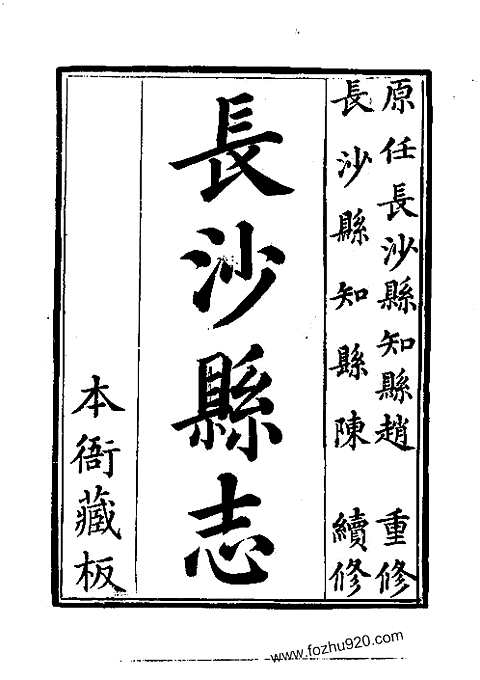 原任長沙縣知縣趙 重修
長沙縣知縣陳 續修
長沙縣志
本衙藏板
www.fozhu920.com